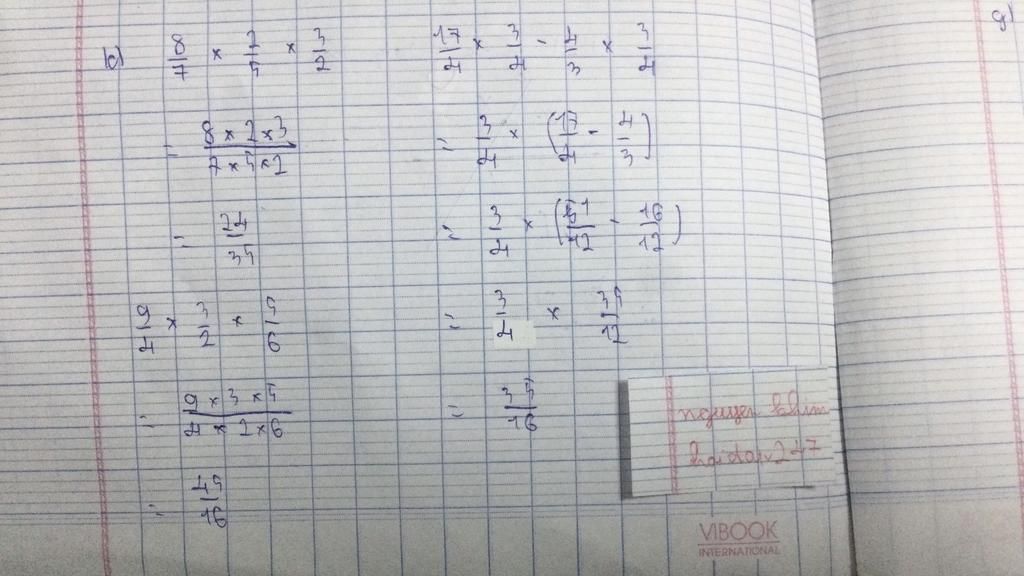 b) 8/7 × 2/5 × 3/2
= (8 × 2 × 3)/(7 × 5 × 2)
= 24/35
9/4 × 3/2 × 5/6
= (9 × 3 × 5)/(4 × 2 × 6)
= 45/16
17/4 × 3/4 - 4/3 × 3/4
= 3/4 × (17/4 - 4/3)
= 3/4 × (51/12 - 16/12)
= 3/4 × 35/12
= 35/16
nguyen khim
hoidap247
VIBOOK
INTERNATIONAL
g)